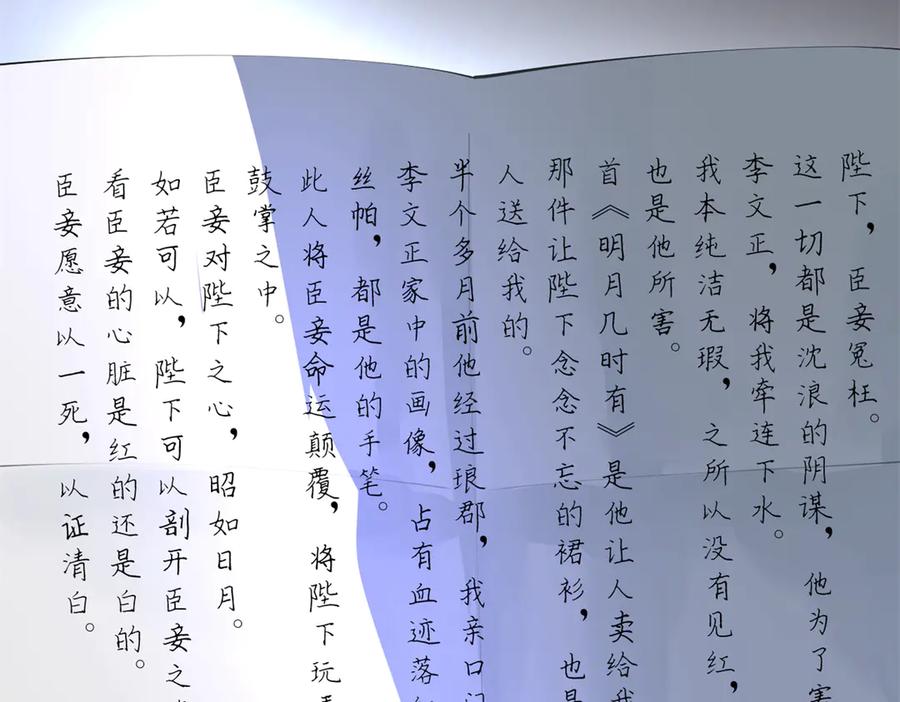 陛下，臣妾冤枉。
这一切都是沈浪的阴谋，他为了害
李文正，将我牵连下水。
我本纯洁无瑕，之所以没有见红，
也是他所害。
首《明月几时有》是他让人卖给我
那件让陛下念念不忘的裙衫，也是
人送给我的。
半个多月前他经过琅郡，我亲口
李文正家中的画像，占有血迹落
丝帕，都是他的手笔。
此人将臣妾命运颠覆，将陛下玩
鼓掌之中。
臣妾对陛下之心，昭如日月。
如若可以，陛下可以剖开臣妾之
看臣妾的心脏是红的还是白的。
臣妾愿意以一死，以证清白。